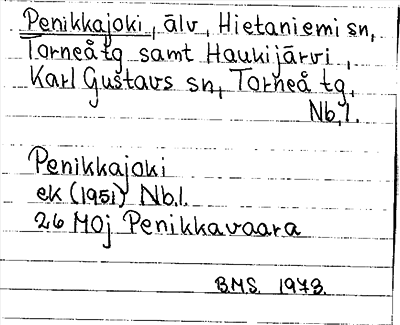 Penikkajoki, älv, Hietaniemi sn,
Torneå tg samt Haukijärvi,
Karl Gustavs sn, Torneå tg,
Nb,l.
Penikkajoki
ek (1951) Nb.l.
26 M0j Penikkavaara
B.M.S. 1973.